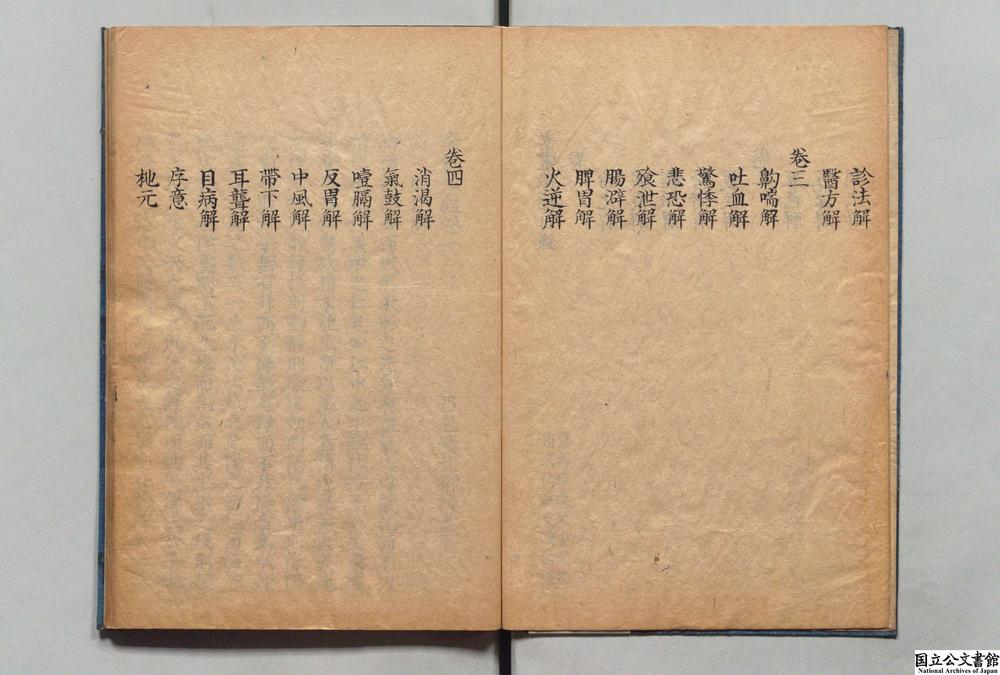 診法解
醫方解
卷三
齁喘解
吐血解
驚悸解
悲恐解
飱泄解
腸澼解
脾胃解
火逆解
卷四
消渴解
氣鼓解
噎膈解
反胃解
中風解
帶下解
耳聾解
目病解
序意
杝元
国立公文書館
National Archives of Japan